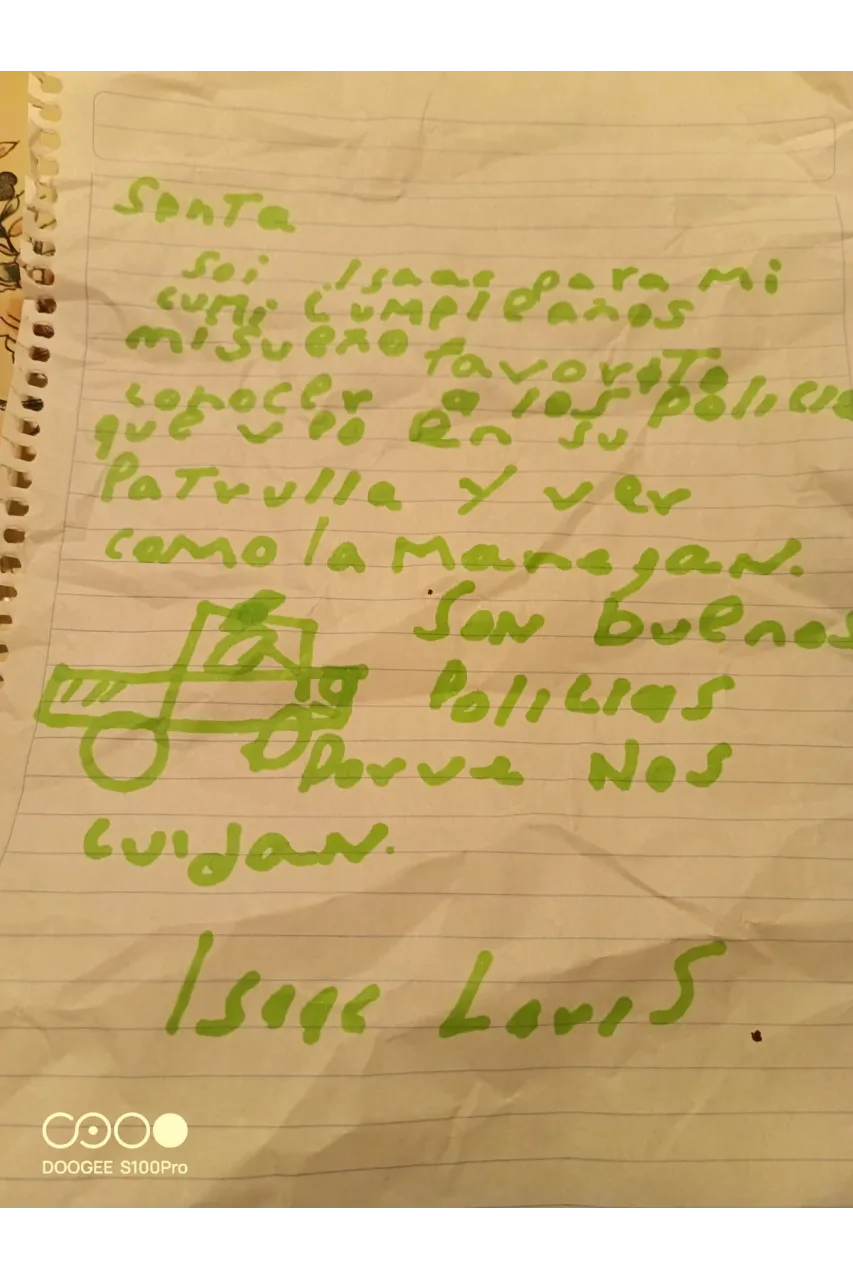 Santa
Soi Isaac para mi
cumi cumpleaños
mi sueño favorito
conocer a los policia
que veo en su
Patrulla y ver
como la Manejan.
Son buenos
Policias
Porue Nos
cuidan.
Isaac
DOOGEE S100Pro